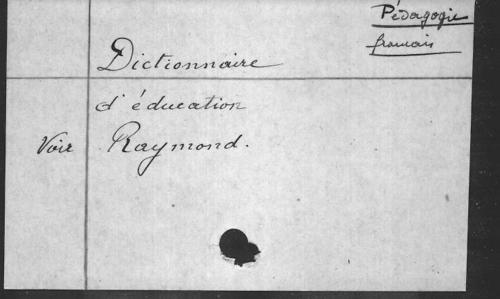 Pédagogie
français
Dictionnaire
d'éducation
Voir Raymond.